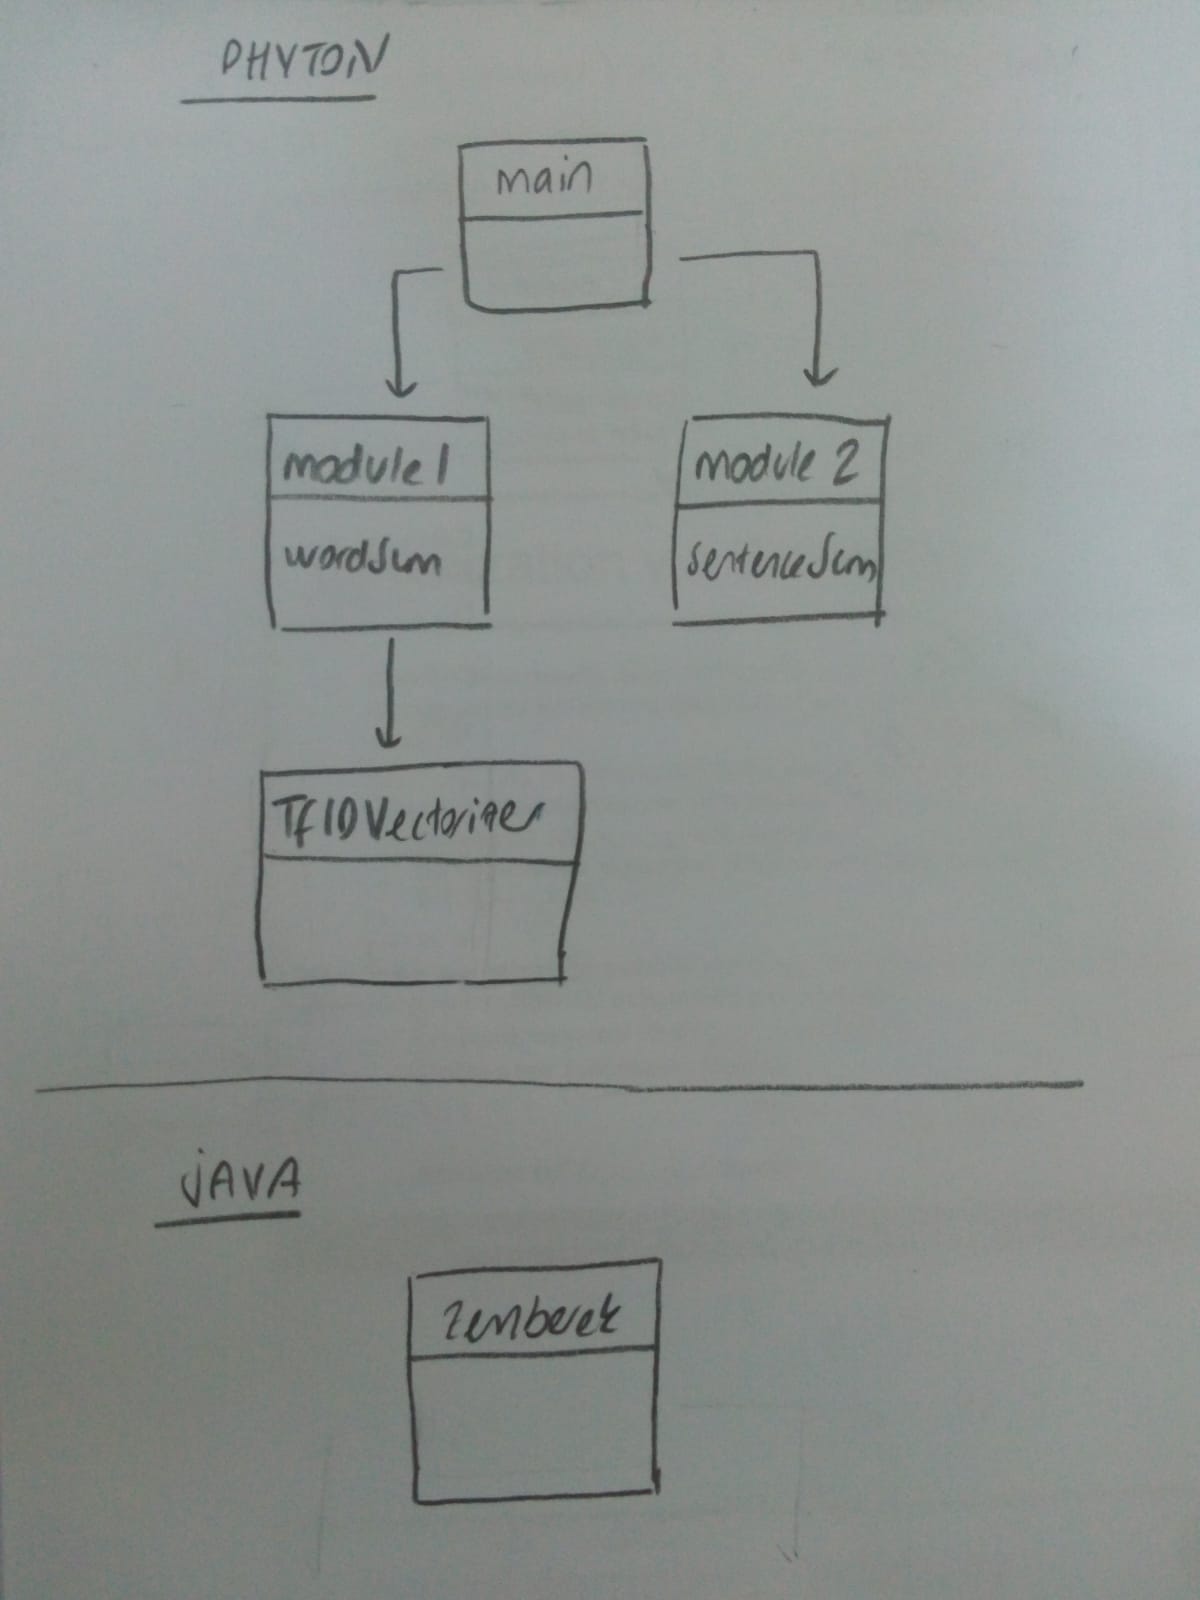 PHYTON
main
module 1
module 2
wordSum
sentenceSum
TFIDVectorizer
JAVA
Zemberek